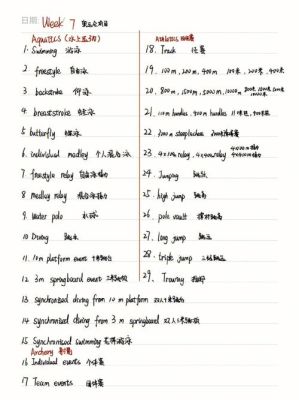 日期: Week 7 奥运会项目
Aquatics (水上运动)
1. Swimming 游泳
2. freestyle 自由泳
3. backstroke 仰泳
4. breaststroke 蛙泳
5 butterfly 蝶泳
6. individual medley 个人混合泳
7 freestyle relay 自由泳接力
8 medley relay 混合泳接力
9 Water polo 水球
10 Diving 跳水
11. 10m platform event 十米跳台
12 3m springboard event 三米跳板
13 synchronized diving from 10 m platform 双人十米跳台
14 synchronized diving from 3 m springboard 双人三米跳板
15 Synchronized swimming 花样游泳
Archery 射箭
16 Individual events 个人赛
17 Team events 团体赛
Athletics 田径赛
18. Track 径赛
19. 100m, 200m, 400m 100米, 200米, 400米
20. 800m, 1500m, 5000m, 10000m
21. 110m hurdles, 400m hurdles 110米栏, 400米栏
22. 3000m steeplechase
23. 4x100m relay, 4x400m relay
24. Jumping 跳跃
25. high jump 跳高
26. pole vault 撑杆跳高
27. long jump 跳远
28. triple jump 三级跳远
29.